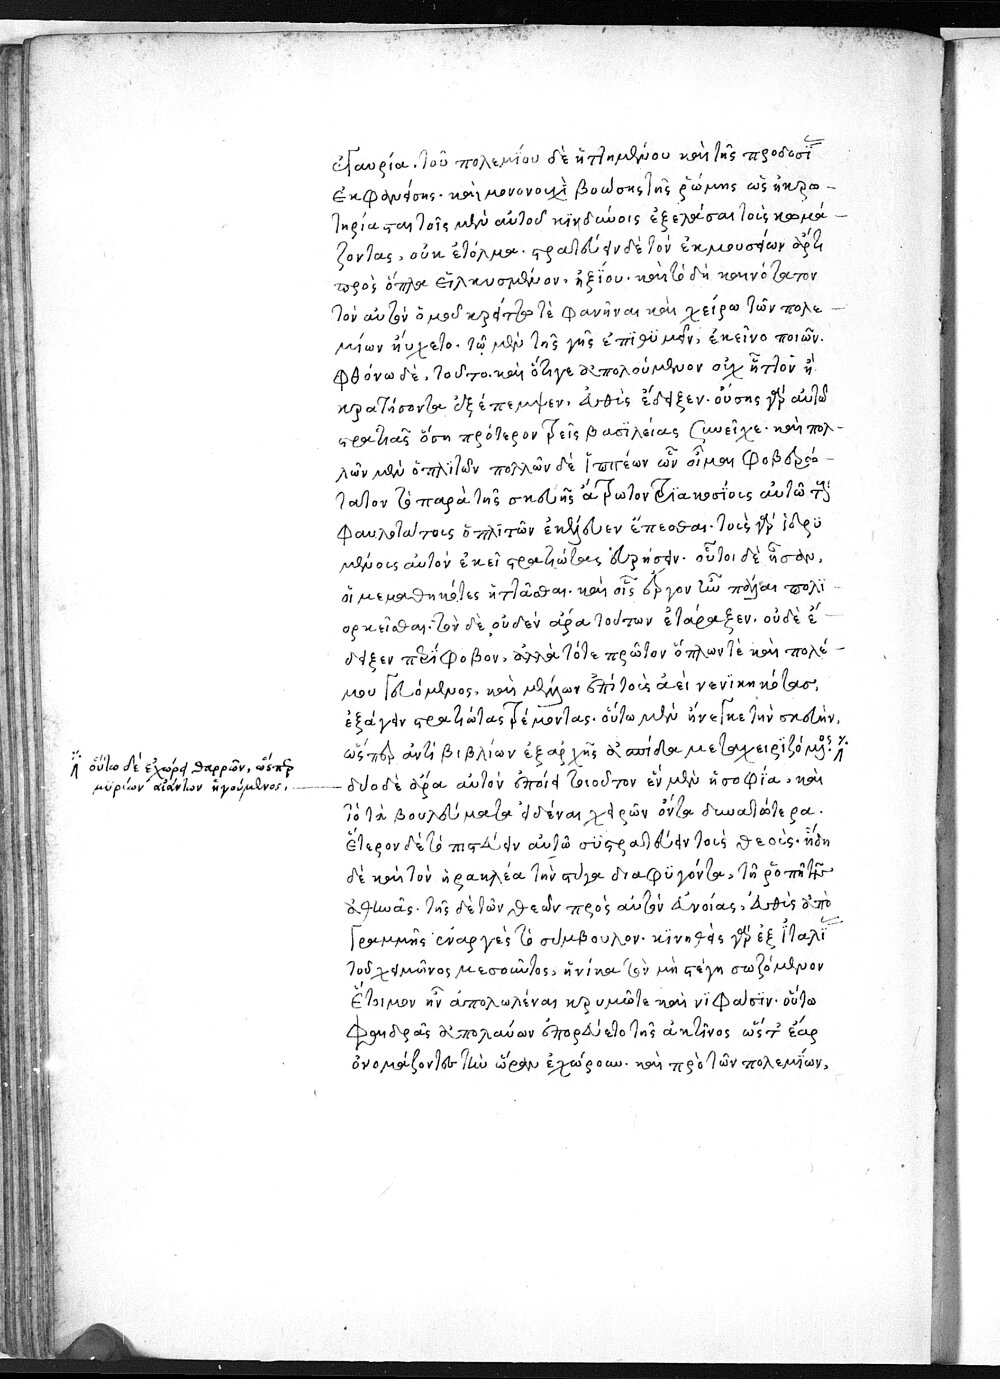 τοῦ πολεμίου δὲ ἡττημένου καὶ τῆς προδοσί
ἐκφανείσης. καὶ μονονουχὶ βοώσης τῆς ῥώμης ὡς ἠκρω-
τηρίασται τοῖς μὲν αὐτοῦ κινδύνοις ἐξελάσαι τοὺς κωμά-
ζοντας, οὐκ ἐτόλμα. στρατεύειν δὲ τὸν ἐκ μουσείων ἄρτι
πρὸς ὅπλα εἱλκυσμένον, ἠξίου. καὶ τὸ δὴ καινότατον
τὸν αὐτὸν ὁμοῦ κρείττω τὲ φανῆναι καὶ χείρω τῶν πολε-
μίων ηὔχετο. τῷ μὲν τῆς γῆς ἐπιθυμεῖν, ἐκεῖνο ποιῶν.
φθόνω δὲ, τοῦτο. καὶ ὅτι γε ἀπολούμενον οὐχ ἧττον ἢ
κρατήσοντα ἐξέπεμψεν, εὐθὺς ἔδειξεν. οὔσης γὰρ αὐτῷ
στρατιᾶς ὅση πρότερον τρεῖς βασιλείας συνεῖχε. καὶ πολ-
λῶν μὲν ὁπλιτῶν πολλῶν δὲ ἱππέων ὧν οἶμαι φοβερώ-
τατον τὸ παρὰ τῆς σκευῆς ἄτρωτον τριακοσίοις αὐτῷ τῶν
φαυλοτάτοις ὁπλιτῶν ἐκέλευεν ἕπεσθαι. τοὺς γὰρ ἱδρυ
μένους αὐτὸν ἐκεῖ στρατιώτας εὑρήσειν. οὗτοι δὲ ἦσαν,
οἱ μεμαθηκότες ἡττᾶσθαι. καὶ οἷς ἔργον ἦν πάλαι πολι
ορκεῖσθαι. τὸν δὲ οὐδὲν ἄρα τούτων ἐτάραξεν. οὐδὲ ἔ
δειξεν φόβον, ἀλλὰ τότε πρῶτον ὅπλων τὲ καὶ πολέ-
μου γευόμενος, καὶ μέλλων ἐπὶ τοὺς ἀεὶ νενικηκότας,
ἐξάγειν στρατιώτας τρέμοντας. οὕτω μὲν ἤνεγκε τὴν σκευήν,
ὥσπερ ἀντὶ βιβλίων ἐξαρχῆς ἀσπίδα μεταχειριζόμενος
ἢ οὕτω δὲ ἐχώρει θαρρῶν, ὥσπερ
μυρίων αἰάντων ἡγούμενος.
δύο δὲ ἄρα αὐτὸν ἐποίει τοιοῦτον ἓν μὲν ἡ σοφία, καὶ
τὸ τὰ βουλεύματα εἰδέναι χειρῶν ὄντα δυνατώτερα.
ἕτερον δὲ τὸ πιστεύειν αὐτῷ συστρατεύειν τοὺς θεούς. ἤδει
δὲ καὶ τὸν ἡρακλέα τὴν στύγα διαφυγόντα, τῇ ῥοπῇ τῆς
ἀθηνᾶς. τῆς δὲ τῶν θεῶν πρὸς αὐτὸν εὐνοίας, εὐθὺς ἀπὸ
γραμμῆς ἐναργὲς τὸ σύμβουλον. κινηθεὶς γὰρ ἐξ ἰταλί
τοῦ χειμῶνος μεσοῦντος, ἡνίκα τὸν μὴ στέγῃ σωζόμενον
ἕτοιμον ἦν ἀπολωλέναι κρυμῷ τε καὶ νιφάσιν. οὕτω
φαιδρᾶς ἀπολαύων ἐπορεύετο τῆς ἀκτῖνος ὥστ' ἔαρ
ὀνομάζοντες τὴν ὥραν ἐχώρουν. καὶ πρὸ τῶν πολεμίων,